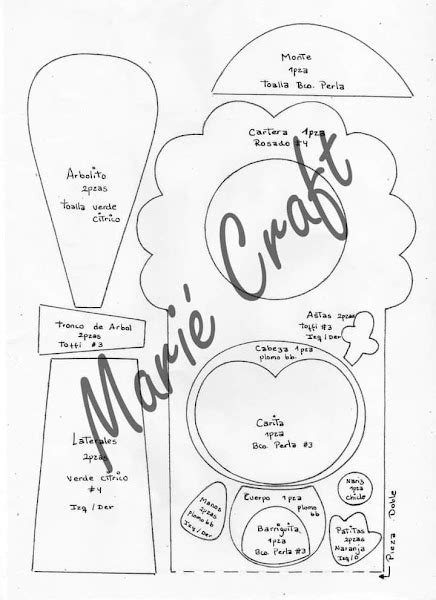 Monte
1pza
Toalla Bco. Perla
Cartera 1pza
Rosado #4
Arbolito
2pzas
toalla verde
citrico
Marié Craft
Astas 2pzas
toffi #3
Izq/Der
Tronco de Arbol
2pzas
Toffi #3
Cabeza 1pza
plomo bb.
Carita
1pza
Bco. Perla #3
Laterales
2pzas
verde citrico
#4
Izq/Der
Nariz
1pza
Chicle
Manos
2pzas
plomo bb
Izq/Der
Cuerpo 1pza
plomo
bb
Barriguita
1pza
Bco. Perla #3
Patitas
2pzas
Naranja
Izq/D
Pieza Doble